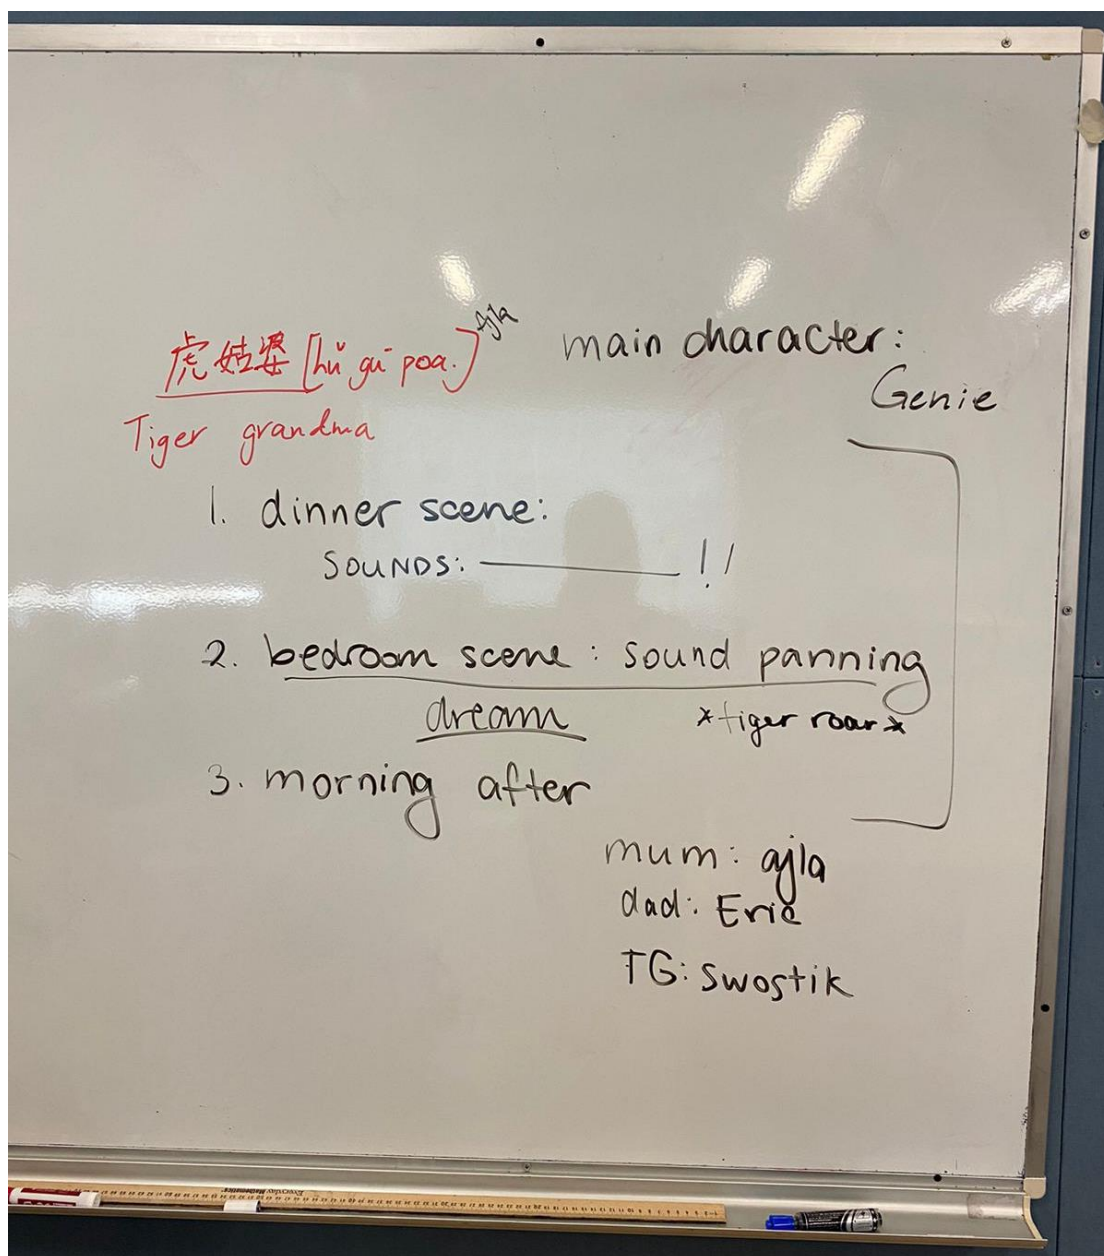 虎姑婆 [hǔ gū poa.] ajla
Tiger grandma
main character:
Genie
1. dinner scene:
SOUNDS: ________ !!
2. bedroom scene : sound panning
dream *tiger roar*
3. morning after
mum: ajla
dad: Eric
TG: Swostik
Everyday Mathematics